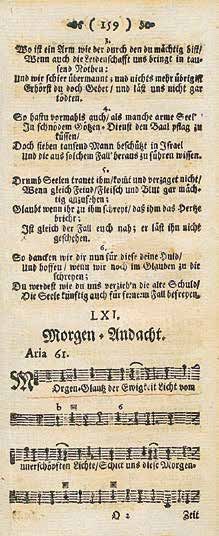 ( 159 )
3.
Wo ist ein Arm wie der durch den du mächtig bist/
Wenn auch die Leidenschafft uns bringt in tau-
send Nothen:
Und wir schier übermannt/ und nichts mehr übrig ist
Gehörst du doch Gebet/ und läst uns nicht gar
tödten.
4.
So hastu vormahls auch/ als manche arme Seel'
In schnödem Götzen-Dienst den Baal pflag zu
küssen/
Doch sieben tausend Mann beschützt in Israel
Und die aus solchem Fall' heraus zu führen wissen.
5.
Drumb Seelen trauet ihm/komt und verzaget nicht/
Wenn gleich Feind/Fleisch und Blut gar mäch-
tig anzusehen:
Glaubt wenn ihr zu ihm schreyt/ daß ihm das Hertze
bricht:
Ist gleich der Fall euch nah; er läst ihn nicht
geschehen.
6.
So dancken wir dir nun für diese deine Huld/
Und hoffen/ wenn wir noch im Glauden zu dir
schreyen;
Du werdest wie du uns verzieh'n die alte Schuld/
Die Seele künftig auch für fernem Fall befreyen.
LXI.
Morgen-Andacht.
Aria 61.
MOrgen-Glantz der Ewigkeit Licht vom
unerschöpften Lichte/Schick uns diese Morgen-
O 2 Zeit